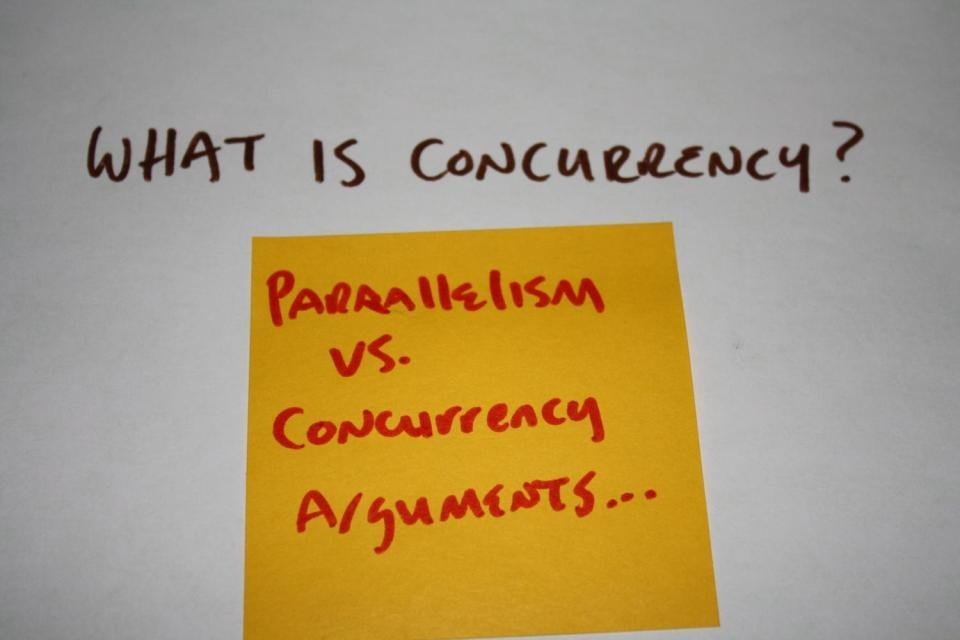 WHAT IS CONCURRENCY?
PARAllElISM
VS.
CONCurrency
ArguMENTS...